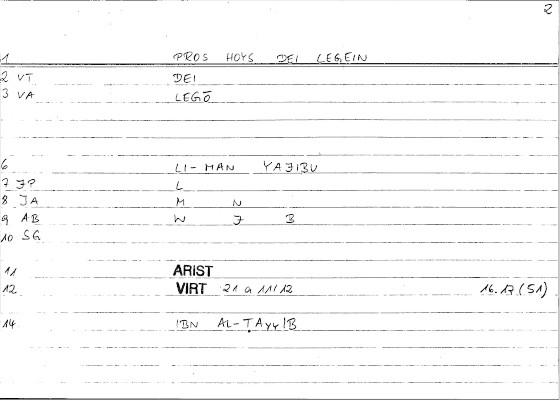 2
1 PROS HOYS DEI LEGEIN
2 VT DEI
3 VA LEGŌ
6 LI-MAN YAJIBU
7 JP L
8 JA M N
9 AB W J B
10 SG
11 ARIST
12 VIRT 21 a 11/12 16.17 (51)
14 IBN AL-ṬAyyIB